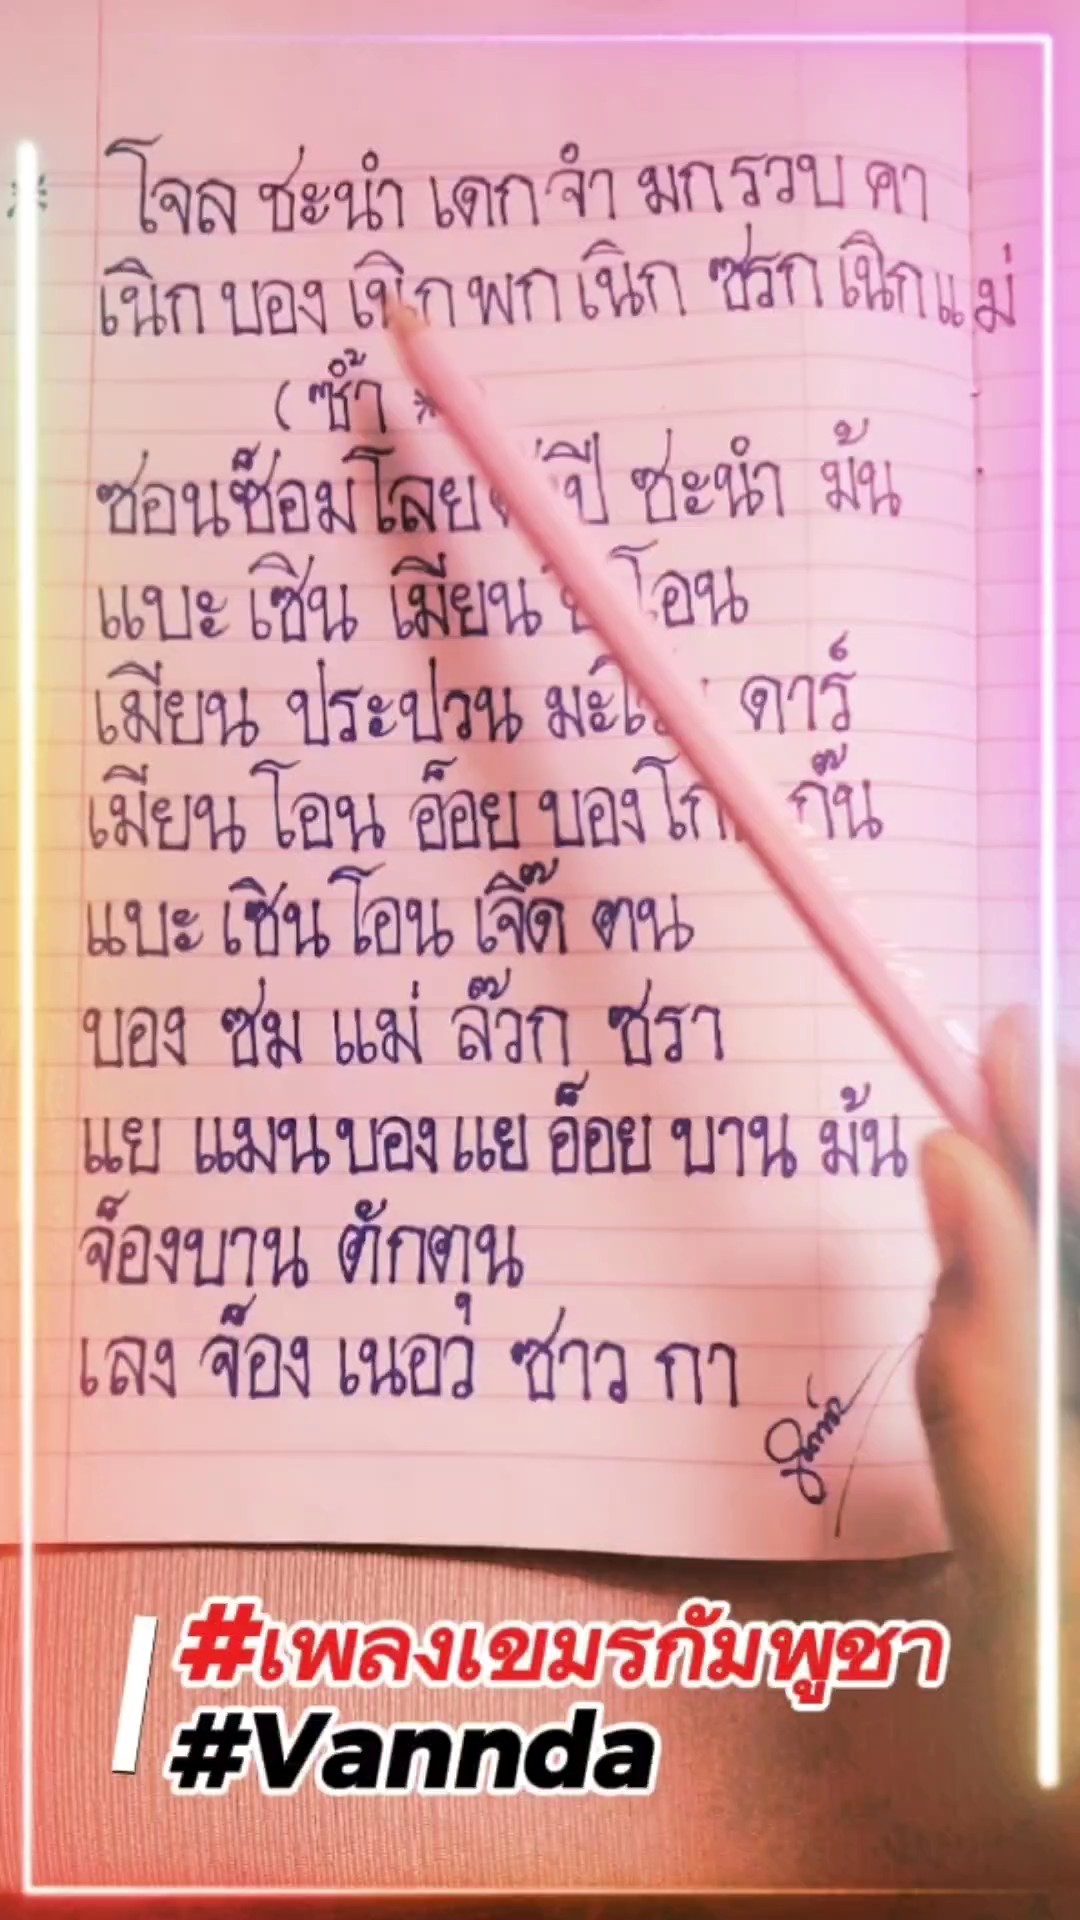 * โจล ชะนำ เดก จำ มก รวบ คา
เนิก บอง เนิก พก เนิก ซรก เนิก แม่
( ซ้ำ *
ซ่อนซ็อมโลย ปี ชะนำ ม้น
แบะ เซิน เมียน โอน
เมียน ประป่วน ดาร์
เมียน โอน อ็อย บอง ก๊ัน
แบะ เซิน โอน เจิ๊ด ตน
บอง ซ่ม แม่ ล๊วก ซ่รา
แย แมน บอง แย อ็อย บาน ม้น
จ็องบาน ตักตุน
เลง จ็อง เนอว ซ่าว กา
#เพลงเขมรกัมพูชา
#Vannda